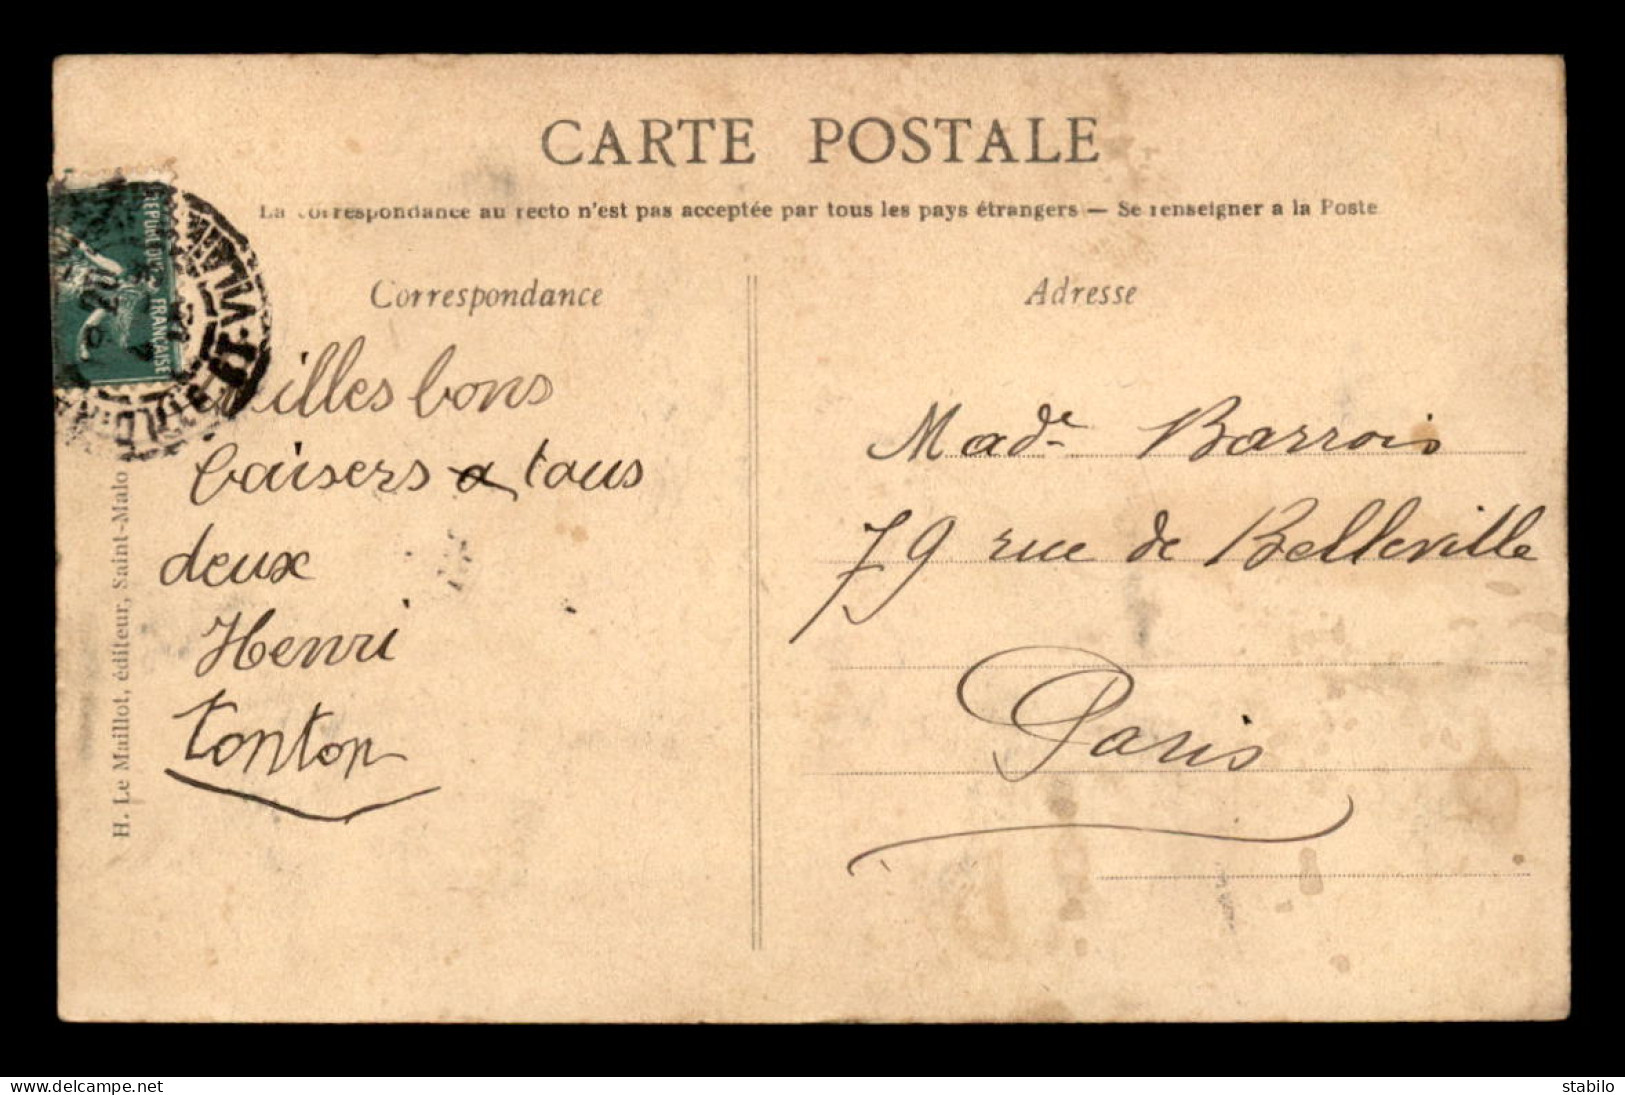 CARTE POSTALE
La correspondance au recto n'est pas acceptée par tous les pays étrangers — Se renseigner a la Poste
Correspondance
illes bons
baisers a tous
deux
Henri
Tonton
Adresse
Made Barrois
79 rue de Belleville
Paris
H. Le Maillot, éditeur, Saint-Malo
FRANÇAISE
delcampe.net
stabilo